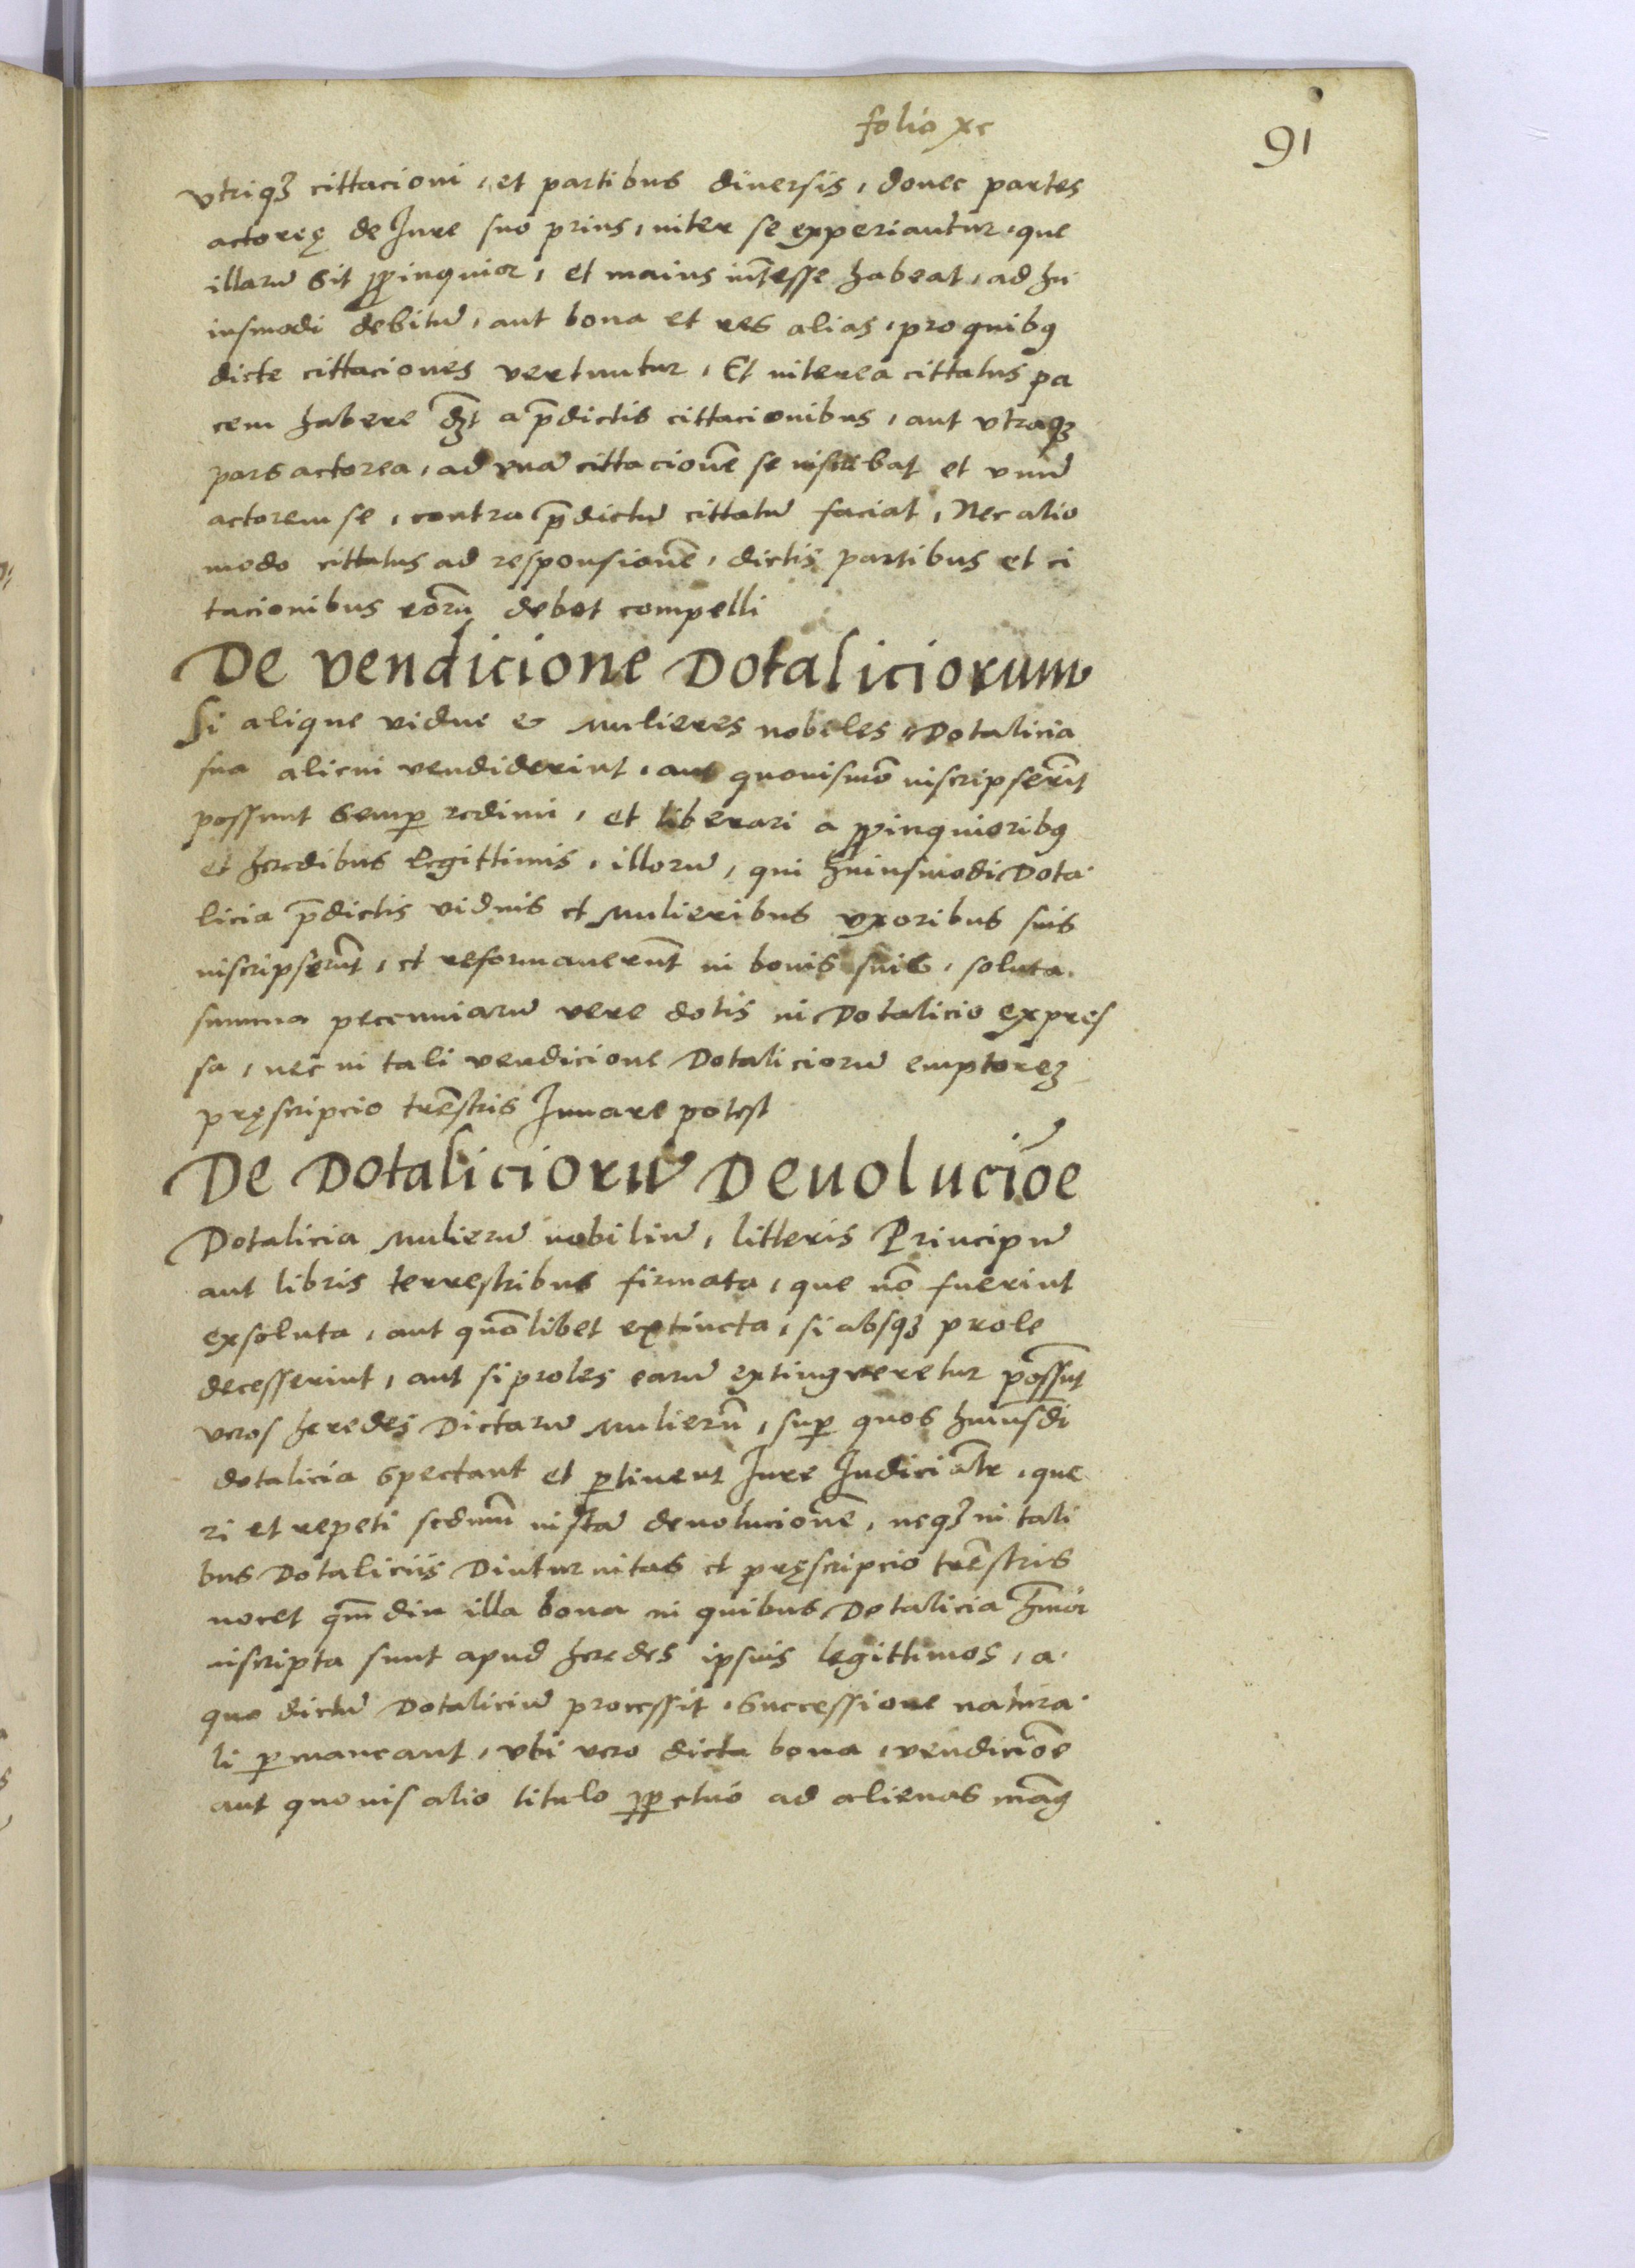 folio xc
91
vtriqꝫ cittacioni, et partibus diuersis, donec partes
actoreę de Jure suo prius, inter se experiantur, que
illarũ sit ꝓpinquior, et maius int̃esse habeat, ad hu
iusmodi debitũ, aut bona et res alias, pro quibꝰ
dicte cittaciones vertuntur, Et interea cittatus pa
cem habere dꝫt a p̃dictis cittacionibus, aut vtraqꝫ
pars actorea, ad vnã cittacionẽ se inscribat et vnũ
actorem se, contra p̃dictũ cittatũ faciat, Nec alio
modo cittatus ad responsionẽ, dictis partibus et ci
tacionibus eor̃u debet compelli
De vendicione Dotaliciorum
Si alique vidue & Mulieres nobiles Dotalicia
sua alicui vendiderint, aut quouismõ inscripser̃it
possunt semꝑ redimi, et liberari a ꝓpinquioribꝰ
et heredibus legittimis, illorũ, qui huiusmodi Dota
licia p̃dictis viduis et Mulieribus vxoribus suis
inscripser̃ut, et reformauer̃ut in bonis suis, soluta
summa pecuniarũ vere dotis in Dotalicio expres
sa, nec in tali vendicione Dotaliciorũ emptoreꝫ
pręscripcio trẽstris Juuare potest
De Dotaliciorũ Deuoluciõe
Dotalicia Mulierũ nobiliũ, litteris Principũ
aut libris terrestribus firmata, que nõ fuerint
exsoluta, aut quõlibet extincta, si absqꝫ prole
decesserint, aut si proles earũ extingveretur poss̃ut
veros heredes Dictarũ Mulierũ, suꝑ quos huiusdi
dotalicia spectant et ꝑtinent Jure Judici ãlr, que
ri et repeti sedmũ instã deuolucionẽ, neqꝫ in tali
bus Dotaliciis Diuturnitas et pręscripcio trẽstris
nocet qm̃ diu illa bona in quibus Dotalicia hm̃oi
inscripta sunt apud heredes ipsius legittimos, a
quo dictũ Dotaliciũ processit, successione natura
li ꝑmaneant, vbi vero dicta bona, vendiciõe
aut quouis alio titulo ꝑpetuo ad alienas mãꝰ